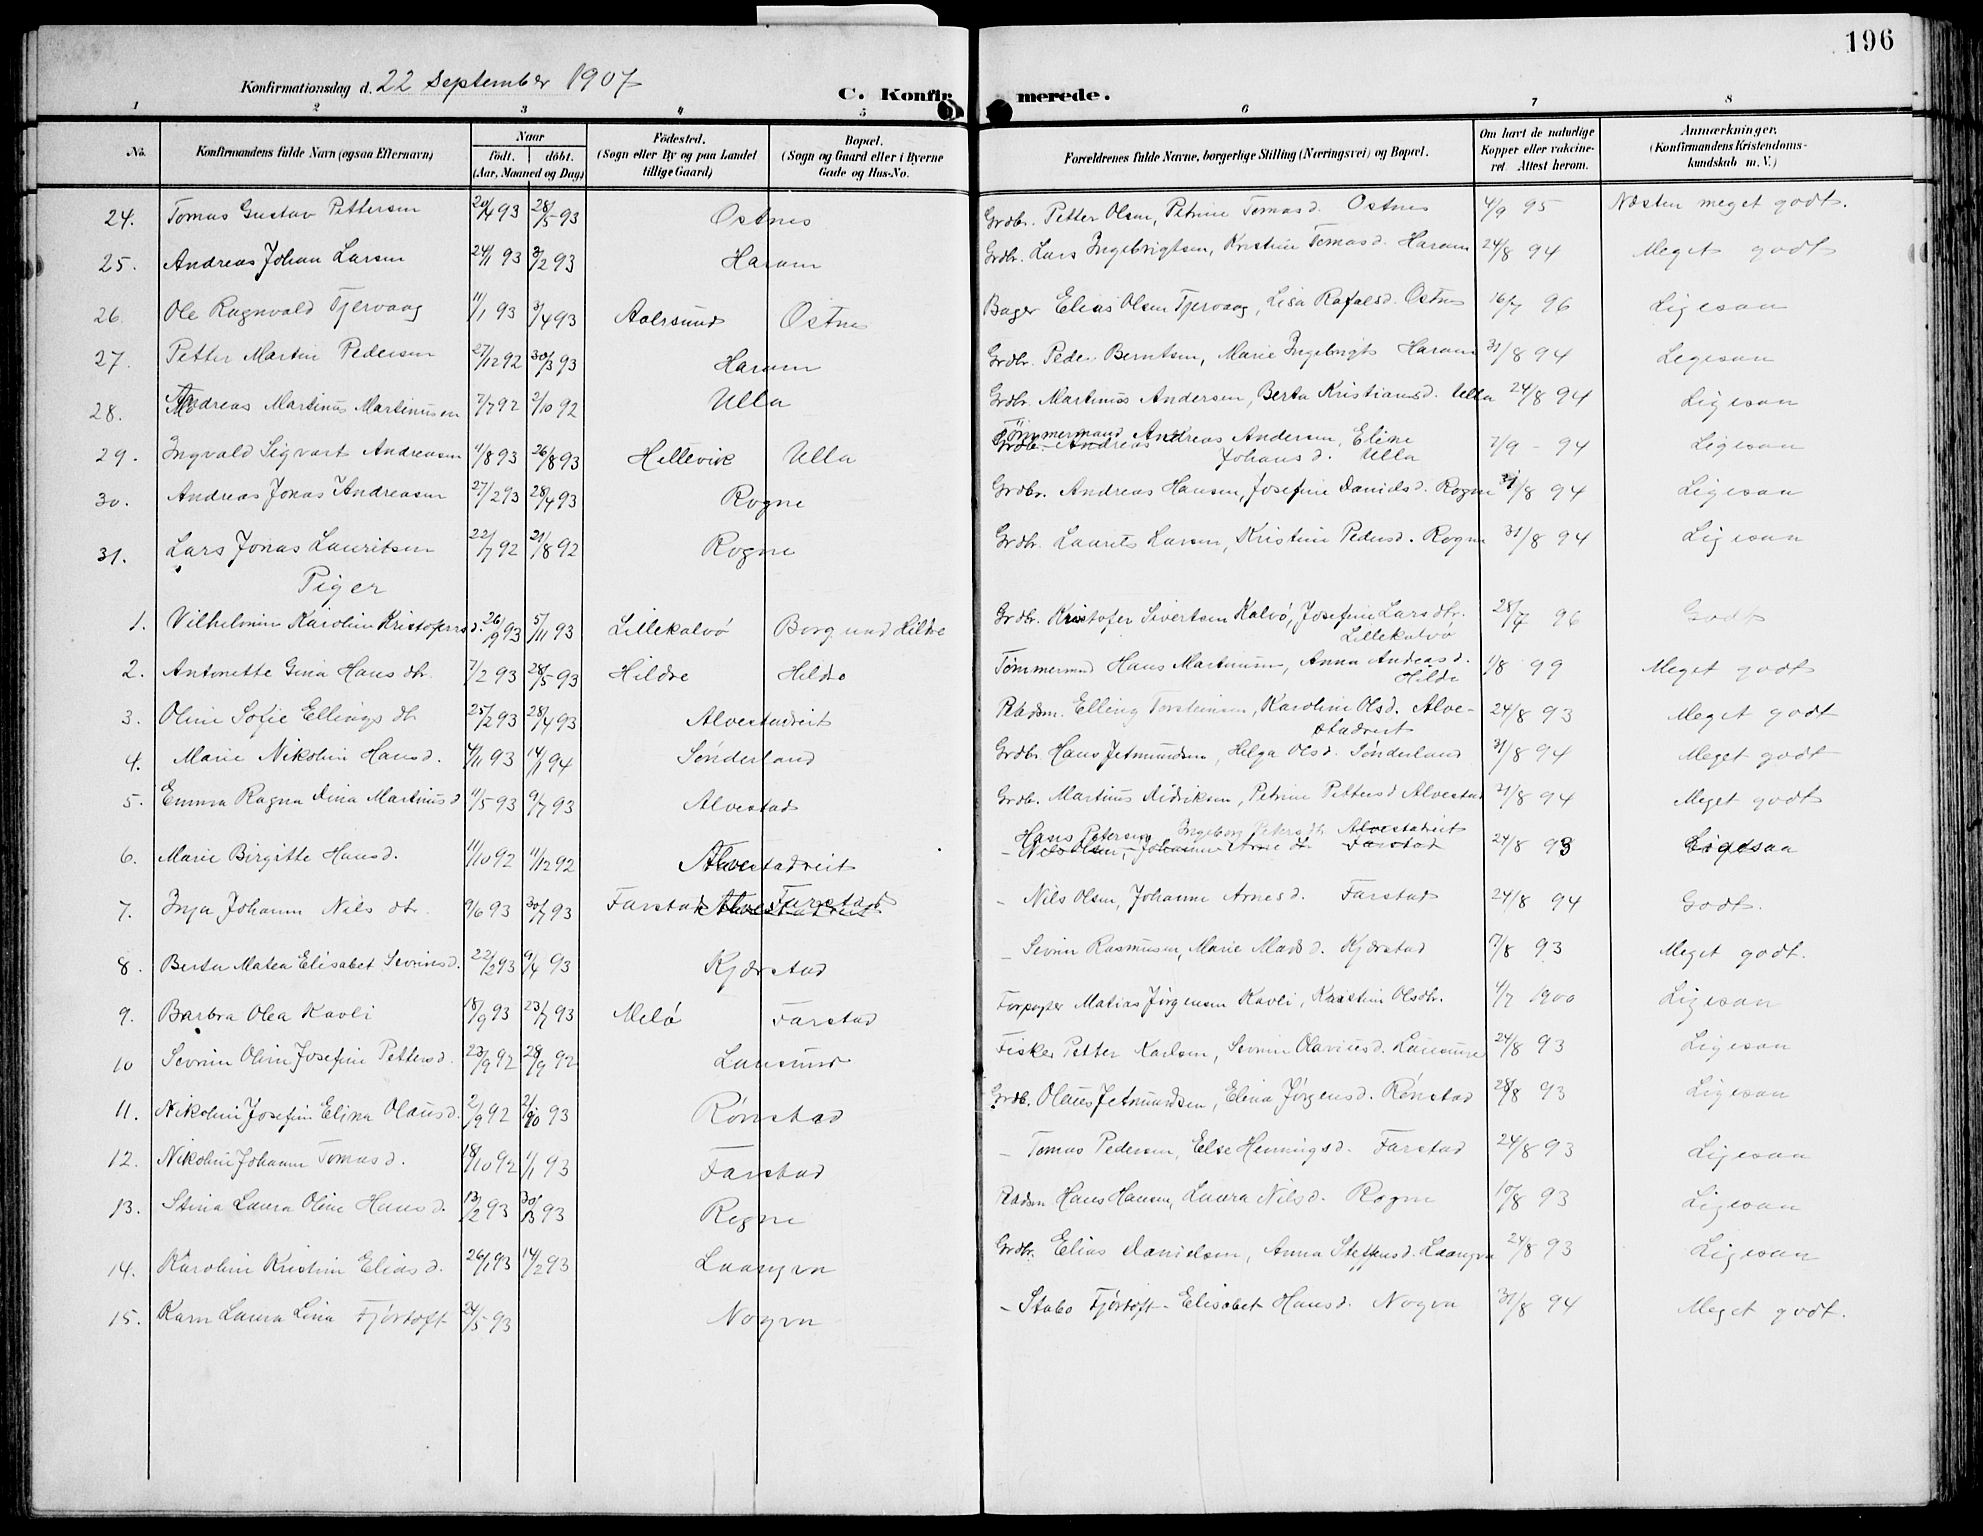 196
Konfirmationsdag d. 22 September 1907
C. Konfirmerede.
1 2 3 4 5 6 7 8
No. Konfirmandens fulde Navn (ogsaa Efternavn) Naar født. døbt. (Aar, Maaned og Dag) Fødested. (Sogn eller By og paa Landet tillige Gaard) Bopæl. (Sogn og Gaard eller i Byerne Gade og Hus-No. Forældrenes fulde Navne, borgerlige Stilling (Næringsvei) og Bopæl. Om havt de naturlige Kopper eller vakcineret. Attest herom. Anmærkninger, (Konfirmandens Kristendomskundskab m. V.)
24. Tomas Gustav Pettersen 20/4 93 28/5 93 Ostnes Grdbr. Petter Olsen, Petrine Tomasd. Ostnes 4/9 95 Næsten meget godt.
25. Andreas Johan Larsen 24/1 93 3/2 93 Haram Grdbr. Lars Ingebrigtsen, Kristine Tomasd. Haram 24/8 94 Meget godt
26. Ole Ragnvald Tjervaag 11/1 93 3/4 93 Aalesund Ostnes Bager Elias Olsen Tjervaag, Lisa Rafaelsd. Ostnes 16/7 96 Ligesaa
27. Petter Martin Pedersen 27/12 92 30/3 93 Haram Grdbr. Peder Berntsen, Marie Ingebrigts Haram 31/8 94 Ligesaa
28. Andreas Martinus Martinussen 7/7 92 2/10 92 Ulla Grdbr. Martinus Andersen, Berta Kristiansd. Ulla 24/8 94 Ligesaa
29. Ingvald Sigvart Andreasen 11/8 93 26/8 93 Hellevik Ulla Tømmermand Andreas Andersen, Eline
Johansd. Ulla 7/9 - 94 Ligesaa
30. Andreas Jonas Andreasen 27/2 93 28/4 93 Rogne Grdbr. Andreas Hansen, Josefine Danielsd. Rogne 31/8 94 Ligesaa
31. Lars Jonas Lauritsen 22/7 92 21/8 92 Rogne Grdbr. Laurits Larsen, Kristine Pedersd. Rogne 31/8 94 Ligesaa
Piger
1. Vilhelmine Karoline Kristofersd. 26/9 93 5/11 93 Lillekalvø Borgund Hildre Grdbr. Kristofer Sivertsen Kalvø, Josefine Larsdtr.
Lillekalvø 28/7 96 Godt
2. Antonette Gina Hansdtr. 7/2 93 28/5 93 Hildre Hildre Tømmermand Hans Martinussen, Anna Andreasd.
Hildre 1/8 99 Meget godt
3. Oline Sofie Ellingsdtr 25/2 93 28/4 93 Alvestadreit Pladsm. Elling Torsteinsen, Karoline Olsd. Alve-
stadreit 24/8 93 Meget godt
4. Marie Nikoline Hansd. 4/11 93 14/1 94 Sønderland Grdbr. Hans Jetmundsen, Helga Olsd. Sønderland 31/8 94 Meget godt
5. Emma Ragna Dina Martinusd 11/5 93 9/7 93 Alvestad Grdbr. Martinus Didriksen, Petrine Pettersd Alvestad 31/8 94 Meget godt
6. Marie Birgitte Hansd. 11/10 92 11/12 92 Alvestadreit Hans Petersen Ingeborg Petersdtr Alvestadreit
- Nils Olsen, Johanne Arnesd. Farstad 24/8 93 Ligesaa
7. Inga Johanne Nilsdtr. 9/6 93 30/7 93 Farstad Alvestadreit Farstad - Nils Olsen, Johanne Arnesd. Farstad 24/8 94 Godt.
8. Berta Matea Elisabet Severinsd. 22/2 93 9/4 93 Kjærstad - Severin Rasmussen, Marie Madsd. Kjærstad 7/8 93 Meget godt.
9. Barbra Olea Kavli 18/9 93 23/7 93 Melø Farstad Forpagter Matias Jørgensen Kavli, Kristine Olsdtr. 4/7 1900 Ligesaa
10 Severine Oline Josefine Pettersd. 23/9 92 29/9 92 Lausund Fisker Petter Karlsen, Severine Olaviusd. Lausund 24/8 93 Ligesaa
11. Nikoline Josefine Elina Olausd. 2/9 92 2/10 93 Rønstad Grdb. Olaus Jetmundsen, Elina Jørgensd. Rønstad 28/8 93 Ligesaa
12. Nikoline Johanne Tomasd. 18/10 92 1/1 93 Farstad - Tomas Pedersen, Else Henningsd. Farstad 24/8 93 Ligesaa
13. Stina Laura Oline Hansd. 13/2 93 30/3 93 Rogne Pladsm Hans Hansen, Laura Nilsd. Rogne 10/8 93 Ligesaa
14. Karoline Kristine Eliasd. 26/1 93 14/2 93 Laangva Grdbr. Elias Danielsen, Anna Steffensd. Laangva 24/8 93 Ligesaa
15. Karn Laura Lina Fjørtoft 24/5 93 Nogva - Stabo Fjørtoft - Elisabet Hansd. Nogva 31/8 94 Meget godt.